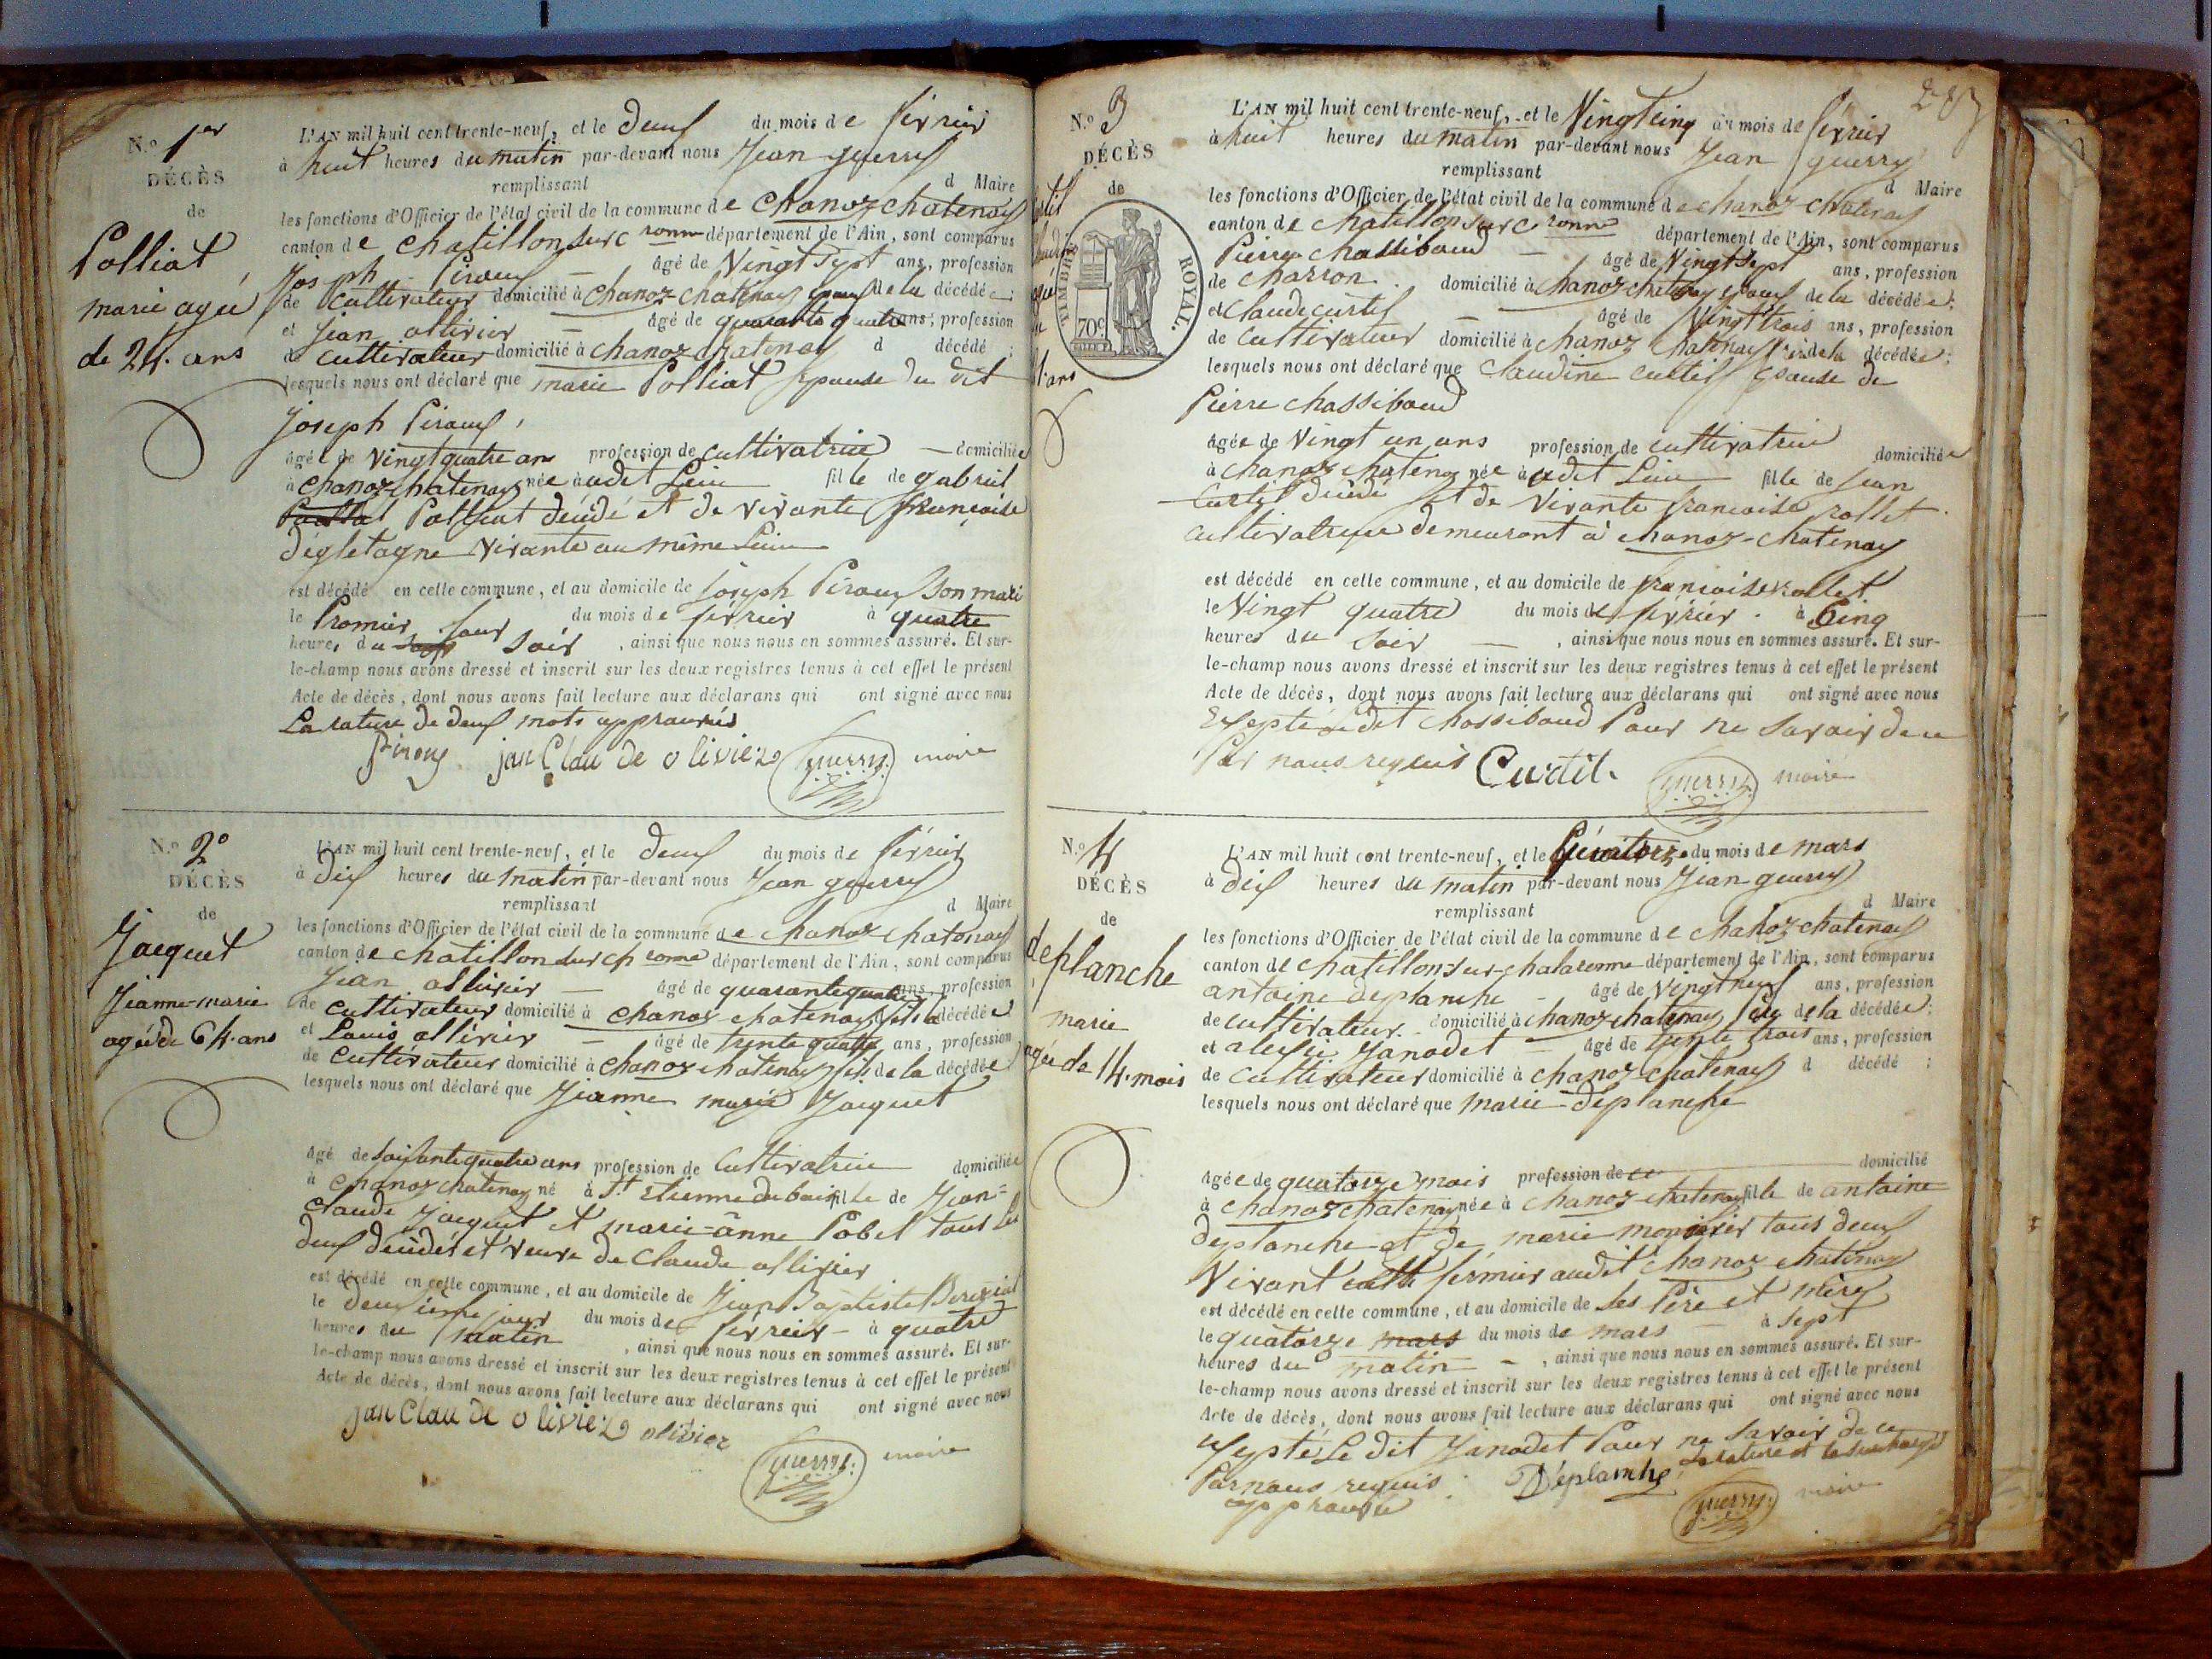 N.o 1er
DÉCÈS
de
Polliat
marie agée
de 24. ans
L'AN mil huit cent trente-neuf, et le deux du mois de février
à huit heures du matin par-devant nous Jean guerry
remplissant d Maire
les fonctions d'Officier de l'état civil de la commune de chanoz chatenay
canton de chatillon sur c ronne département de l'Ain, sont comparus
Joseph Piroux — âgé de Vingt sept ans, profession
de Cultivateur domicilié à chanoz chatenay epoux de la décédée;
et Jean ollivier — âgé de quarante quatre ans, profession
de cultivateur domicilié à chanoz chatenay d décédé ;
lesquels nous ont déclaré que marie Polliat epouse du dit
joseph Piroux,
âgée de vingt quatre ans profession de cultivatrice — domiciliée
à chanoz chatenay née audit Lieu fille de gabriel
Polliat décédé et de vivante françoise
dégletagne vivante au même Lieu
est décédé en cette commune, et au domicile de joseph Piroux son mari
le Promier jour du mois de février à quatre
heures du soir , ainsi que nous nous en sommes assuré. Et sur-
le-champ nous avons dressé et inscrit sur les deux registres tenus à cet effet le présent
Acte de décès, dont nous avons fait lecture aux déclarans qui ont signé avec nous
La rature de deux mots approuvés
Piroux jan Clau de olivier guerry maire
N.o 2e
DÉCÈS
de
Jacquet
Jeanne-marie
agée de 64. ans
L'AN mil huit cent trente-neuf, et le deux du mois de février
à dix heures du matin par-devant nous Jean guerry
remplissant d Maire
les fonctions d'Officier de l'état civil de la commune de chanoz chatenay
canton de chatillon sur ch ronne département de l'Ain, sont comparus
Jean ollivier — âgé de quarante quatre ans, profession
de cultivateur domicilié à chanoz chatenay fils de la décédée
et Louis ollivier — âgé de trente quatre ans, profession
de Cultivateur domicilié à chanoz chatenay fils de la décédée
lesquels nous ont déclaré que Jeanne marie Jacquet
âgé de soixante quatre ans profession de Cultivatrice domiciliée
à chanoz chatenay né à St Etienne du bois fille de Jean=
claude Jacquet et marie=anne Pobel tous les
deux décédés et veuve de claude ollivier
est décédé en cette commune, et au domicile de Jean Baptiste
le deuxième jour du mois de février — à quatre
heures du matin , ainsi que nous nous en sommes assuré. Et sur-
le-champ nous avons dressé et inscrit sur les deux registres tenus à cet effet le présent
Acte de décès, dont nous avons fait lecture aux déclarans qui ont signé avec nous
jan Clau de olivier olivier
guerry maire
N.o 3
DÉCÈS
de
TIMBRE ROYAL.
70c
L'AN mil huit cent trente-neuf, et le Vingt cinq du mois de février
à huit heures du matin par-devant nous Jean guerry
remplissant d Maire
les fonctions d'Officier de l'état civil de la commune de chanoz chatenay
canton de chatillon sur c ronne département de l'Ain, sont comparus
Pierre chassiboud — âgé de Vingt sept ans, profession
de charron. domicilié à chanoz chatenay epoux de la décédée;
et Claude curtil — âgé de Vingt trois ans, profession
de cultivateur domicilié à chanoz chatenay frère de la décédée;
lesquels nous ont déclaré que Claudine curtil epouse de
Pierre chassiboud
âgée de Vingt un ans profession de cultivatrice domiciliée
à chanoz chatenay née audit Lieu fille de jean
Curtil décédé et de Vivante francoise rollet
cultivatrice demeurant à chanoz-chatenay
est décédé en cette commune, et au domicile de francoise rollet
le Vingt quatre du mois de février. à Cinq
heures du soir — , ainsi que nous nous en sommes assuré. Et sur-
le-champ nous avons dressé et inscrit sur les deux registres tenus à cet effet le présent
Acte de décès, dont nous avons fait lecture aux déclarans qui ont signé avec nous
Exepté ledit chassiboud Pour ne Savoir de ce
Par nous requis Curtil. guerry maire
N.o 4
DÉCÈS
de
deplanche
marie
agée de 14. mois
L'AN mil huit cent trente-neuf, et le Quatorze du mois de mars
à dix heures du matin par-devant nous Jean guerry
remplissant d Maire
les fonctions d'Officier de l'état civil de la commune de chanoz chatenay
canton de chatillon-sur-chalaronne département de l'Ain, sont comparus
antoine deplanche — âgé de Vingt neuf ans, profession
de cultivateur. domicilié à chanoz chatenay père de la décédée;
et alexis Janodet — âgé de trente trois ans, profession
de cultivateur domicilié à chanoz-chatenay d décédé ;
lesquels nous ont déclaré que marie deplanche
âgée de quatorze mois profession de domicilié
à chanoz chatenay née à chanoz chatenay fille de antoine
deplanche et de marie tous deux
Vivant fermier audit chanoz chatenay
est décédé en cette commune, et au domicile de ses Père et mère
le quatorze mars du mois de mars — à sept
heures du matin — , ainsi que nous nous en sommes assuré. Et sur-
le-champ nous avons dressé et inscrit sur les deux registres tenus à cet effet le présent
Acte de décès, dont nous avons fait lecture aux déclarans qui ont signé avec nous
exepté Le dit Janodet Pour ne Savoir de ce
Par nous requis. Déplanche La rature et la surcharge
approuvée guerry maire